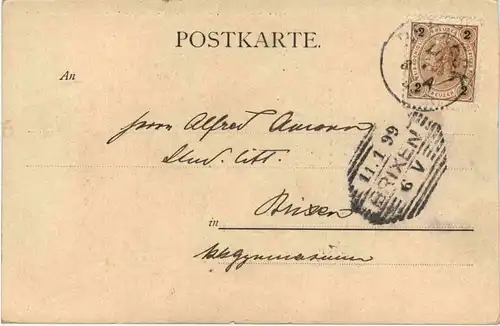 POSTKARTE.
2 2
2 2
An
Herrn Alfred Ammann
Stud. Litt.
11.1.99
BRIXEN
6 A
in Brixen